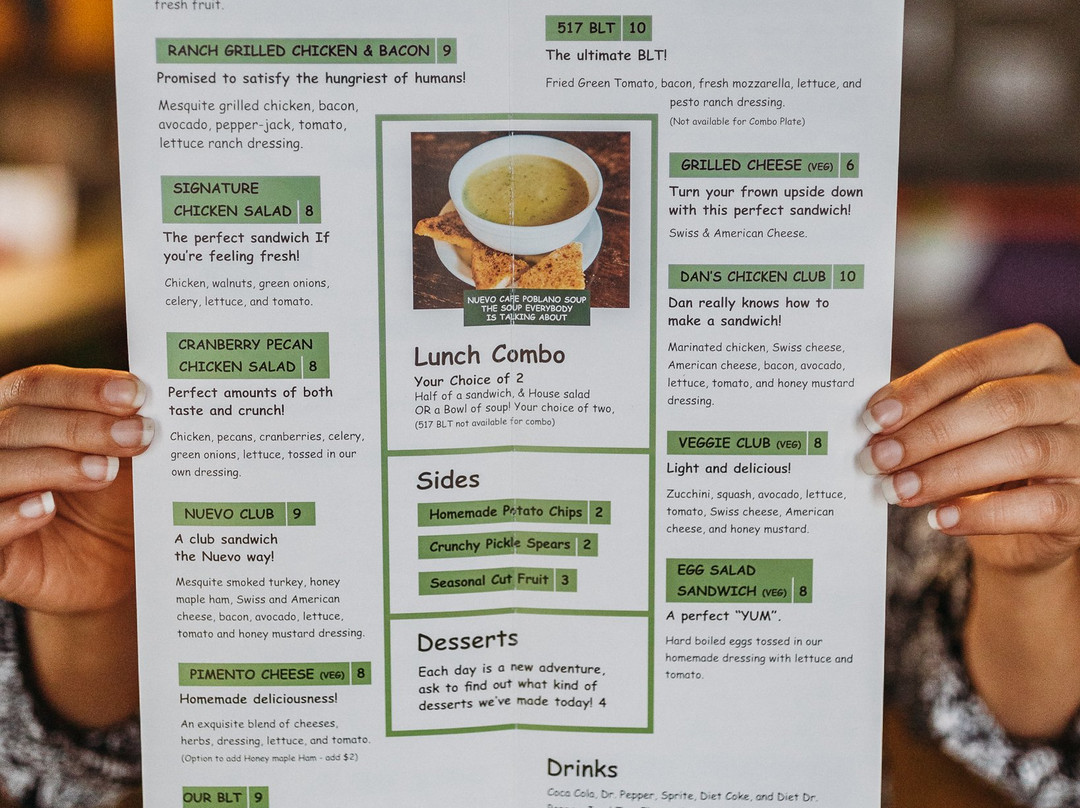 fresh fruit.
RANCH GRILLED CHICKEN & BACON 9
Promised to satisfy the hungriest of humans!
Mesquite grilled chicken, bacon,
avocado, pepper-jack, tomato,
lettuce ranch dressing.
SIGNATURE
CHICKEN SALAD 8
The perfect sandwich If
you're feeling fresh!
Chicken, walnuts, green onions,
celery, lettuce, and tomato.
CRANBERRY PECAN
CHICKEN SALAD 8
Perfect amounts of both
taste and crunch!
Chicken, pecans, cranberries, celery,
green onions, lettuce, tossed in our
own dressing.
NUEVO CLUB 9
A club sandwich
the Nuevo way!
Mesquite smoked turkey, honey
maple ham, Swiss and American
cheese, bacon, avocado, lettuce,
tomato and honey mustard dressing.
PIMENTO CHEESE (VEG) 8
Homemade deliciousness!
An exquisite blend of cheeses,
herbs, dressing, lettuce, and tomato.
(Option to add Honey maple Ham - add $2)
OUR BLT 9
NUEVO CAFE POBLANO SOUP
THE SOUP EVERYBODY
IS TALKING ABOUT
Lunch Combo
Your Choice of 2
Half of a sandwich, & House salad
OR a Bowl of soup! Your choice of two,
(517 BLT not available for combo)
Sides
Homemade Potato Chips 2
Crunchy Pickle Spears 2
Seasonal Cut Fruit 3
Desserts
Each day is a new adventure,
ask to find out what kind of
desserts we've made today! 4
517 BLT 10
The ultimate BLT!
Fried Green Tomato, bacon, fresh mozzarella, lettuce, and
pesto ranch dressing.
(Not available for Combo Plate)
GRILLED CHEESE (VEG) 6
Turn your frown upside down
with this perfect sandwich!
Swiss & American Cheese.
DAN'S CHICKEN CLUB 10
Dan really knows how to
make a sandwich!
Marinated chicken, Swiss cheese,
American cheese, bacon, avocado,
lettuce, tomato, and honey mustard
dressing.
VEGGIE CLUB (VEG) 8
Light and delicious!
Zucchini, squash, avocado, lettuce,
tomato, Swiss cheese, American
cheese, and honey mustard.
EGG SALAD
SANDWICH (VEG) 8
A perfect "YUM".
Hard boiled eggs tossed in our
homemade dressing with lettuce and
tomato.
Drinks
Coca Cola, Dr. Pepper, Sprite, Diet Coke, and Diet Dr.